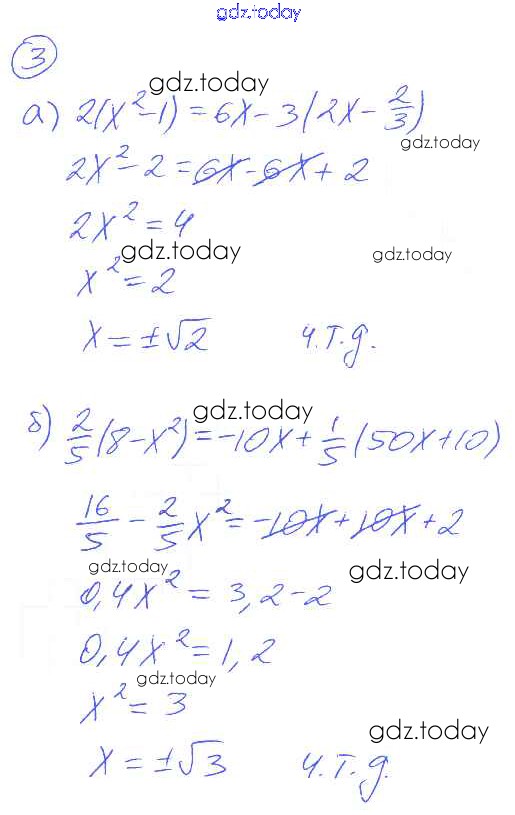 gdz.today
3
gdz.today
а) 2(x² - 1) = 6x - 3(2x - 2/3)
gdz.today
2x² - 2 = 6x - 6x + 2
2x² = 4
gdz.today gdz.today
x² = 2
x = ±√2 ч.т.д.
gdz.today
б) 2/5(8 - x²) = -10x + 1/5(50x + 10)
16/5 - 2/5x² = -10x + 10x + 2
gdz.today gdz.today
0,4x² = 3,2 - 2
0,4x² = 1,2
gdz.today
x² = 3
gdz.today
x = ±√3 ч.т.д.